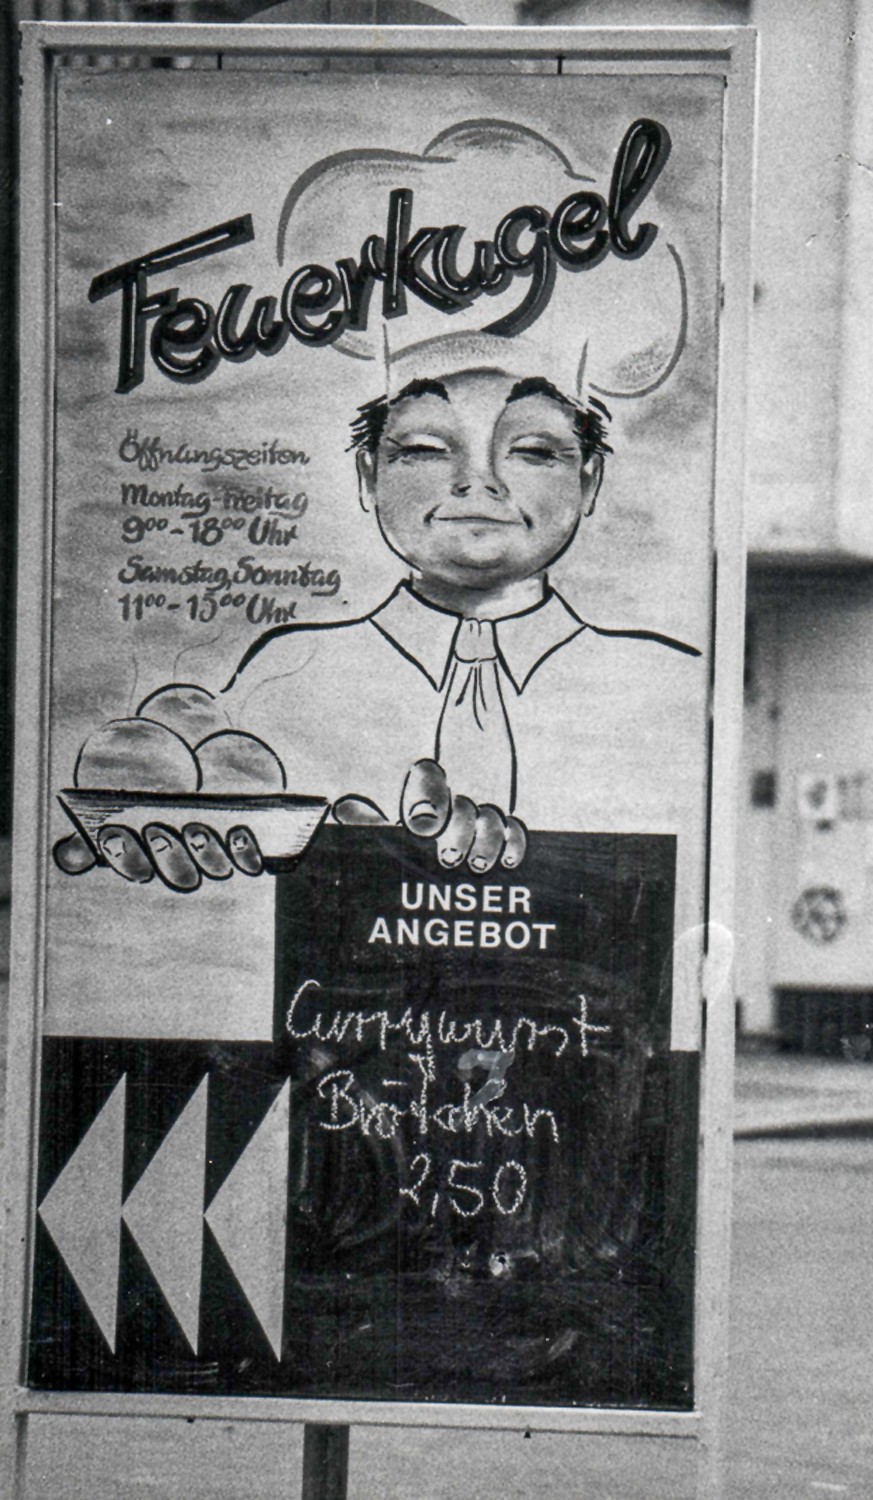 Feuerkugel
Öffnungszeiten
Montag-Freitag
9⁰⁰-18⁰⁰ Uhr
Samstag, Sonntag
11⁰⁰-15⁰⁰ Uhr
UNSER
ANGEBOT
Currywurst
Brötchen
2,50